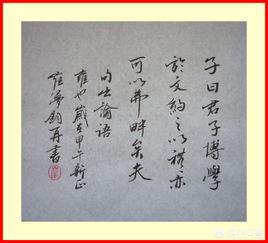 子曰君子博學
於文約之以禮亦
可以弗畔矣夫
句出論語
雍也歲在甲午新正
再書